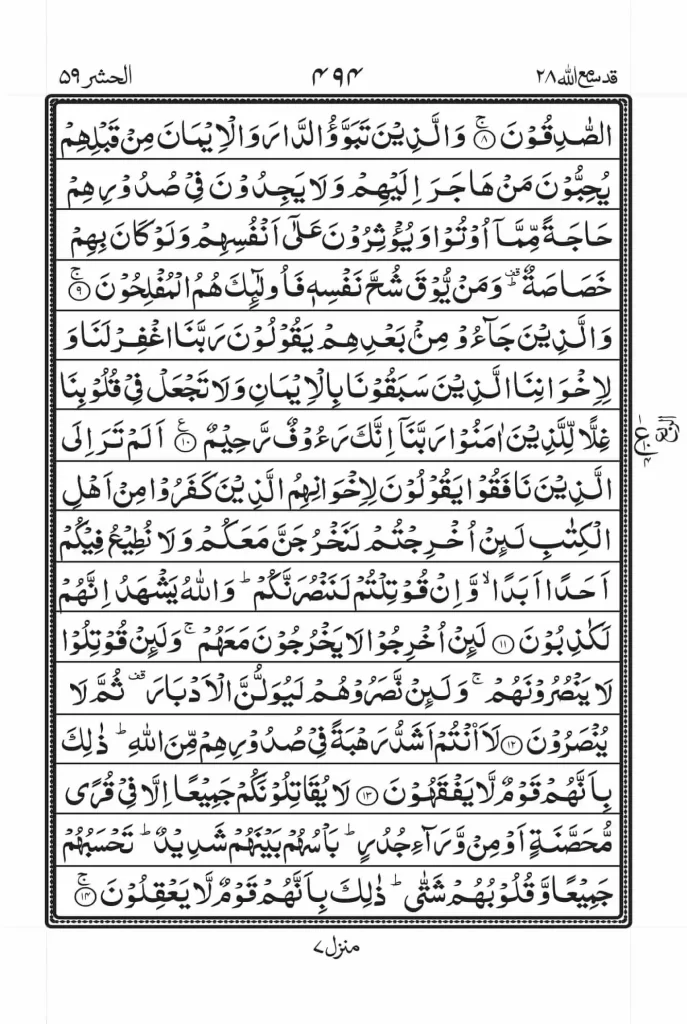 قد سمع الله ٢٨
٤٩٤
الحشر ٥٩
الصّٰدِقُوْنَ ۚ﴿۸﴾ وَالَّذِيْنَ تَبَوَّؤُ الدَّارَ وَالْاِيْمَانَ مِنْ قَبْلِهِمْ
يُحِبُّوْنَ مَنْ هَاجَرَ اِلَيْهِمْ وَلَا يَجِدُوْنَ فِيْ صُدُوْرِهِمْ
حَاجَةً مِّمَّاۤ اُوْتُوْا وَيُؤْثِرُوْنَ عَلٰۤى اَنْفُسِهِمْ وَلَوْ كَانَ بِهِمْ
خَصَاصَةٌ ؕ۟ وَمَنْ يُّوْقَ شُحَّ نَفْسِهٖ فَاُولٰٓئِكَ هُمُ الْمُفْلِحُوْنَ ۚ﴿۹﴾
وَالَّذِيْنَ جَآءُوْ مِنْۢ بَعْدِهِمْ يَقُوْلُوْنَ رَبَّنَا اغْفِرْ لَنَا وَ
لِاِخْوَانِنَا الَّذِيْنَ سَبَقُوْنَا بِالْاِيْمَانِ وَلَا تَجْعَلْ فِيْ قُلُوْبِنَا
غِلًّا لِّلَّذِيْنَ اٰمَنُوْا رَبَّنَاۤ اِنَّكَ رَءُوْفٌ رَّحِيْمٌ ﴿۱۰﴾ع اَلَمْ تَرَ اِلَى
الَّذِيْنَ نَافَقُوْا يَقُوْلُوْنَ لِاِخْوَانِهِمُ الَّذِيْنَ كَفَرُوْا مِنْ اَهْلِ
الْكِتٰبِ لَئِنْ اُخْرِجْتُمْ لَنَخْرُجَنَّ مَعَكُمْ وَلَا نُطِيْعُ فِيْكُمْ
اَحَدًا اَبَدًا ۙ وَّاِنْ قُوْتِلْتُمْ لَنَنْصُرَنَّكُمْ ؕ وَاللّٰهُ يَشْهَدُ اِنَّهُمْ
لَكٰذِبُوْنَ ﴿۱۱﴾ لَئِنْ اُخْرِجُوْا لَا يَخْرُجُوْنَ مَعَهُمْ ۚ وَلَئِنْ قُوْتِلُوْا
لَا يَنْصُرُوْنَهُمْ ۚ وَلَئِنْ نَّصَرُوْهُمْ لَيُوَلُّنَّ الْاَدْبَارَ ۟ ثُمَّ لَا
يُنْصَرُوْنَ ﴿۱۲﴾ لَاَانْتُمْ اَشَدُّ رَهْبَةً فِيْ صُدُوْرِهِمْ مِّنَ اللّٰهِ ؕ ذٰلِكَ
بِاَنَّهُمْ قَوْمٌ لَّا يَفْقَهُوْنَ ﴿۱۳﴾ لَا يُقَاتِلُوْنَكُمْ جَمِيْعًا اِلَّا فِيْ قُرًى
مُّحَصَّنَةٍ اَوْ مِنْ وَّرَآءِ جُدُرٍ ؕ بَاْسُهُمْ بَيْنَهُمْ شَدِيْدٌ ؕ تَحْسَبُهُمْ
جَمِيْعًا وَّقُلُوْبُهُمْ شَتّٰى ؕ ذٰلِكَ بِاَنَّهُمْ قَوْمٌ لَّا يَعْقِلُوْنَ ۚ﴿۱۴﴾
منزل ٧